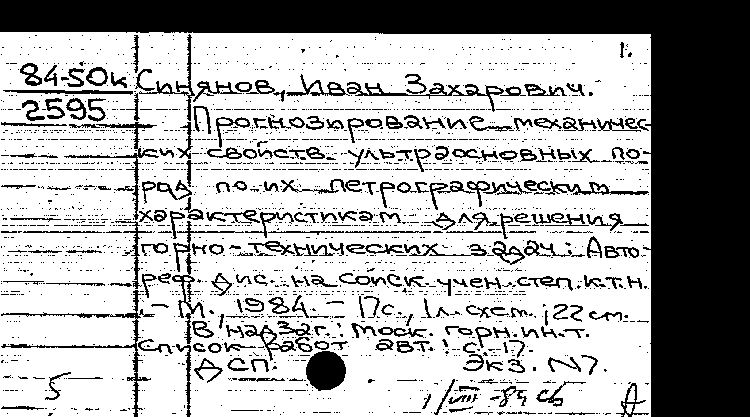 1.
84-50к Синянов, Иван Захарович.
2595 Прогнозирование механичес-
ких свойств ультраосновных по-
род по их петрографическим
характеристикам для решения
горно-технических задач: Авто-
реф. дис. на соиск. учен. степ. к.т.н.
- М., 1984. - 17с., 1л. схем.; 22 см.
В надзаг.: Моск. горн. ин.т.
Список работ авт.: с. 17.
ДСП. Экз. N7.
5 1/VIII -84 А